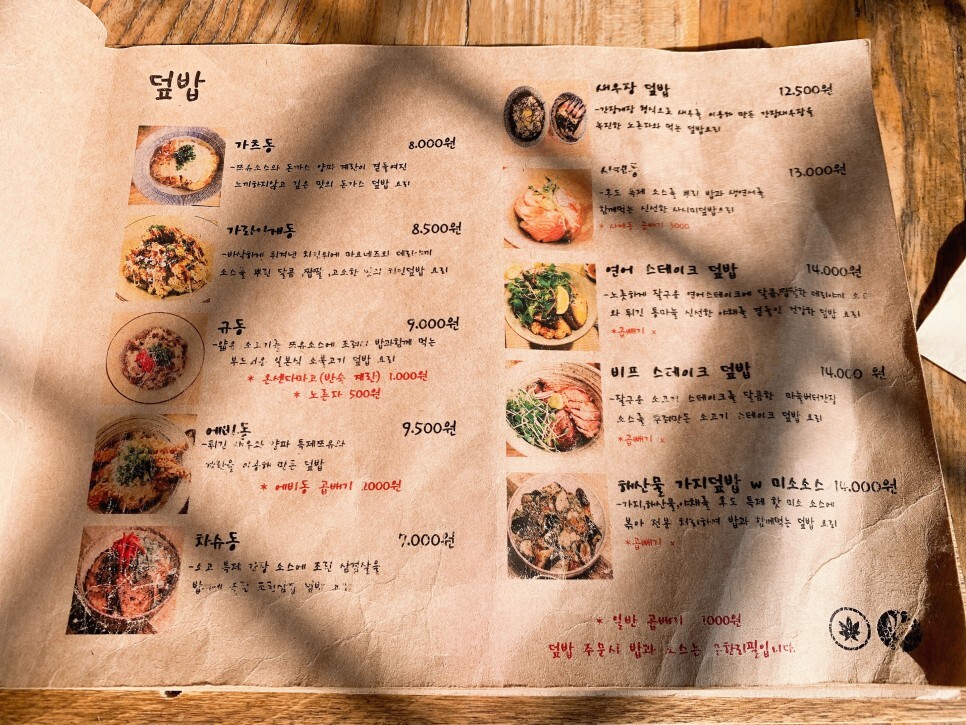 덮밥
가츠동 8.000원
-쯔유소스와 돈가스 양파 계란이 곁들여진
느끼하지않고 깊은 맛의 돈가스 덮밥 요리
가라아게동 8.500원
-바삭하게 튀겨낸 치킨위에 마요네즈와 데리야끼
소스를 뿌린 달콤, 짭짤, 고소한 맛의 치킨덮밥 요리
규동 9.000원
-얇은 소고기를 쯔유소스에 조려 밥과함께 먹는
부드러운 일본식 소불고기 덮밥 요리
* 온센다마고(반숙 계란) 1.000원
* 노른자 500원
에비동 9.500원
-튀긴 새우와 양파 특제쯔유와
계란을 이용해 만든 덮밥
* 에비동 곱빼기 2000원
차슈동 7.000원
특제 간장 소스에 조린 삼겹살을
새우장 덮밥 12.500원
-간장게장 형식으로 새우를 이용해 만든 간장새우장을
녹진한 노른자와 먹는 덮밥요리
사케동 13.000원
-후도 특제 소스를 뿌린 밥과 생연어를
함께먹는 신선한 사시미덮밥요리
* 사케동 곱빼기 5000
연어 스테이크 덮밥 14.000원
-노릇하게 잘구운 연어스테이크에 달콤,짭짤한 데리야끼 소스
와 튀긴 통마늘 신선한 야채를 곁들인 건강한 덮밥 요리
*곱빼기 x
비프 스테이크 덮밥 14.000 원
-잘구운 소고기 스테이크를 달콤한 마늘버터간장
소스를 곁들인 소고기 스테이크 덮밥 요리
*곱빼기 x
해산물 가지덮밥 w 미소소스 14.000원
-가지,해산물,야채를 후도 특제 한 미소 소스에
볶아 전분 처리하여 밥과 함께먹는 덮밥 요리
*곱빼기 x
* 일반 곱빼기 1000원
덮밥 주문시 밥과 소스는 무한리필입니다.